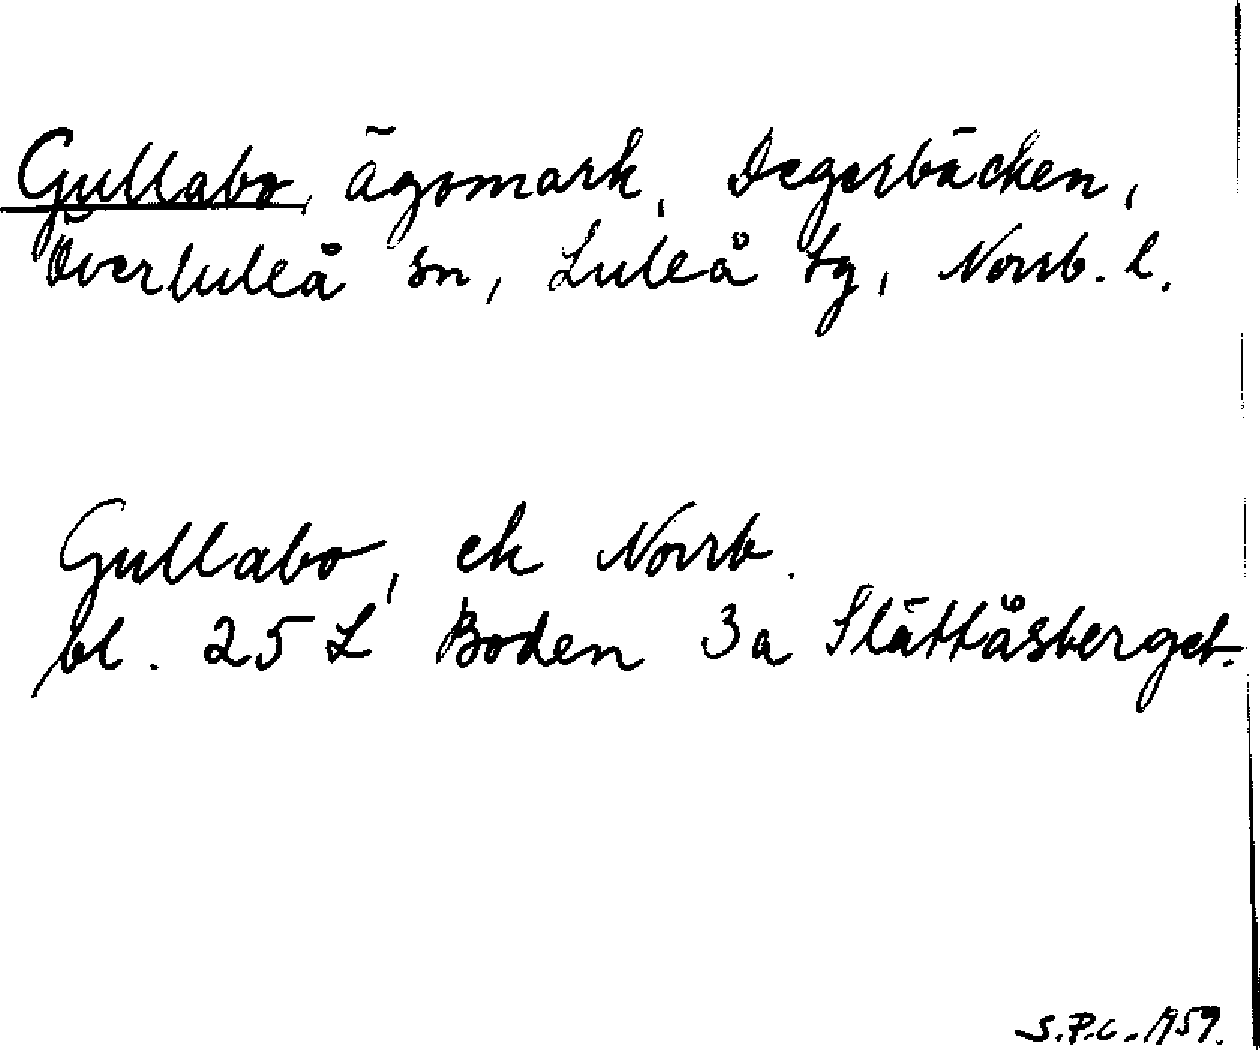 Gullabo, ägomark, Degerbäcken,
Överluleå sn, Luleå tg, Norrb. l.
Gullabo, ek Norrb.
bl. 25 L Boden 3a Slåttåsberget.
S.P.C. 1959.